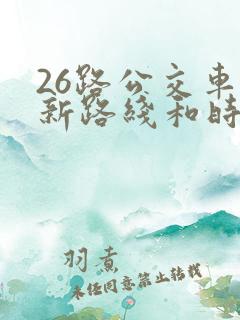 26路公交车
新路线和时
羽青
未经同意禁止转载